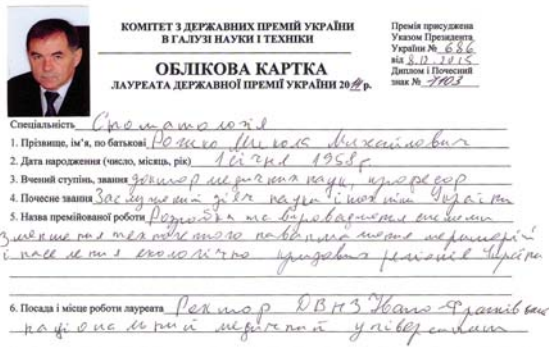 КОМІТЕТ З ДЕРЖАВНИХ ПРЕМІЙ УКРАЇНИ
В ГАЛУЗІ НАУКИ І ТЕХНІКИ
ОБЛІКОВА КАРТКА
ЛАУРЕАТА ДЕРЖАВНОЇ ПРЕМІЇ УКРАЇНИ 2014 р.
Премія присуджена
Указом Президента
України № 686
від 8.12.2015
Диплом і Почесний
знак № 7703
Спеціальність Стоматологія
1. Прізвище, ім'я, по батькові Рожко Микола Михайлович
2. Дата народження (число, місяць, рік) 1 січня 1958 р
3. Вчений ступінь, звання доктор медичних наук, професор
4. Почесне звання Заслужений діяч науки і техніки України
5. Назва премійованої роботи Розробка та впровадження системи
зменшення техногенного навантаження
і населення екологічно кризових регіонів України
6. Посада і місце роботи лауреата Ректор ДВНЗ Івано-Франківський
національний медичний університет